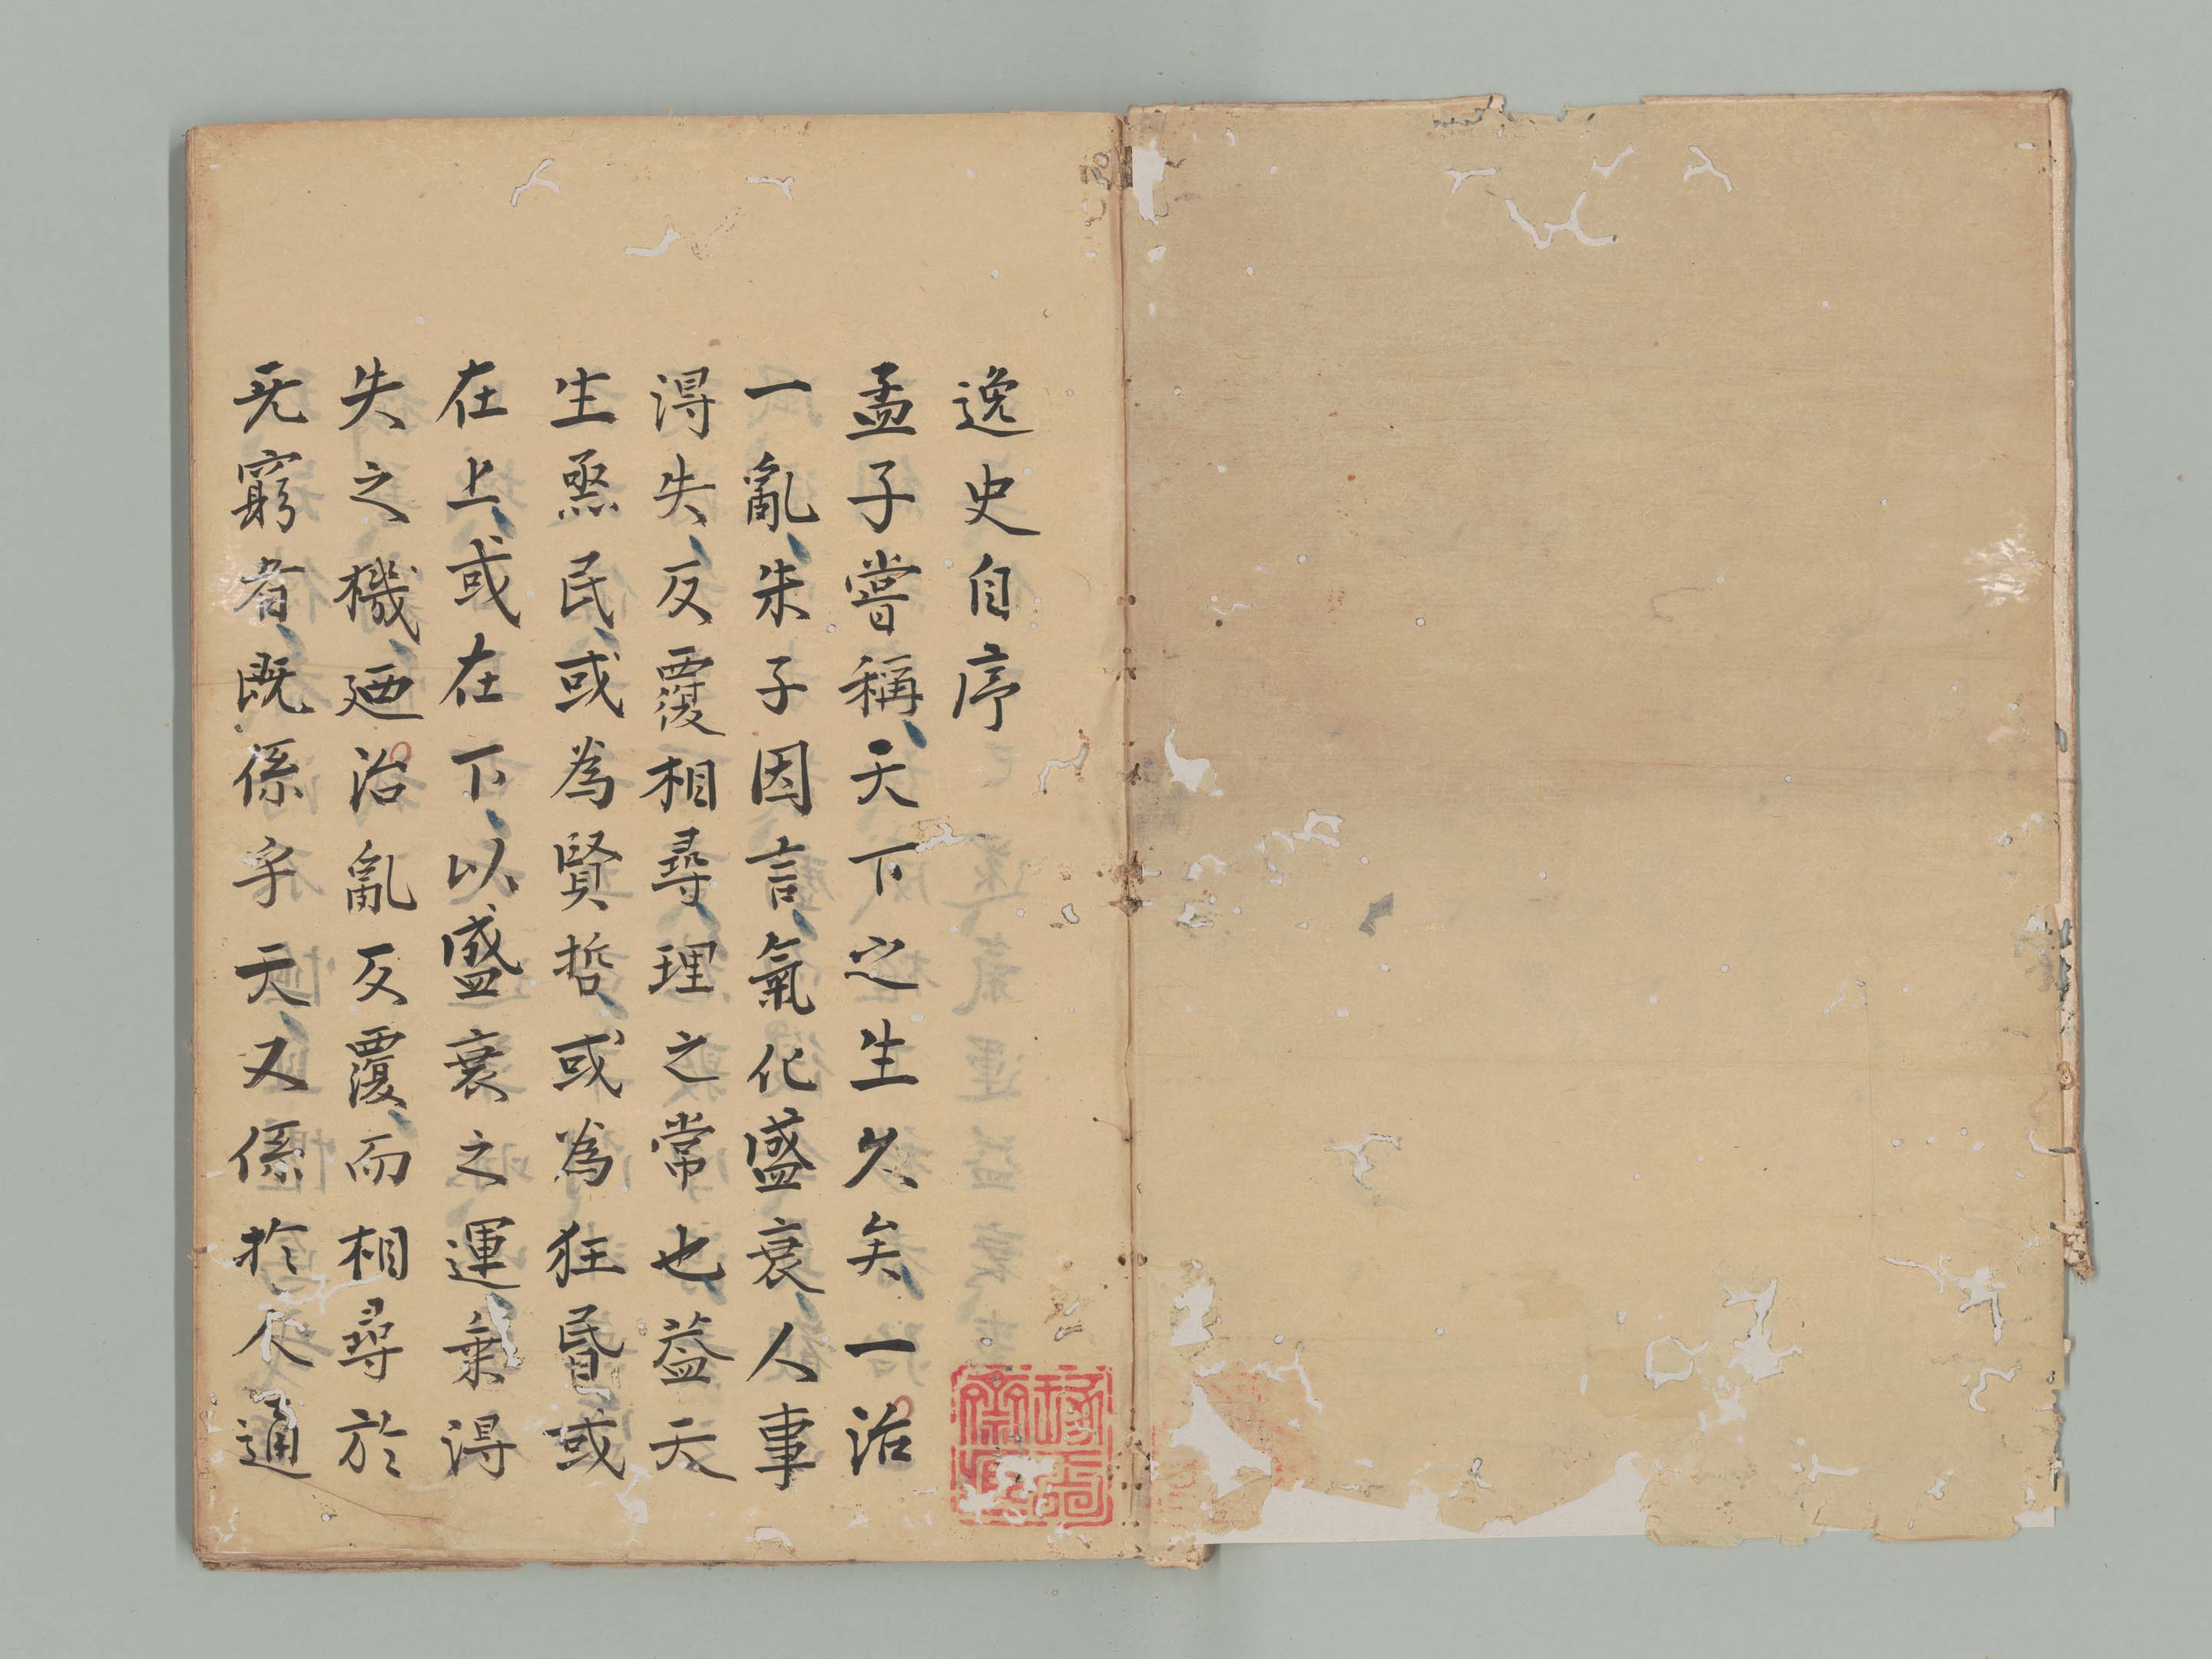 逸史自序
孟子嘗稱天下之生久矣一治
一亂朱子因言氣化盛衰人事
得失反覆相尋理之常也益天
生烝民或為賢哲或為狂昏或
在上或在下以盛衰之運乗得
失之機廼治亂反覆而相尋於
无窮者既係乎天又係於人通